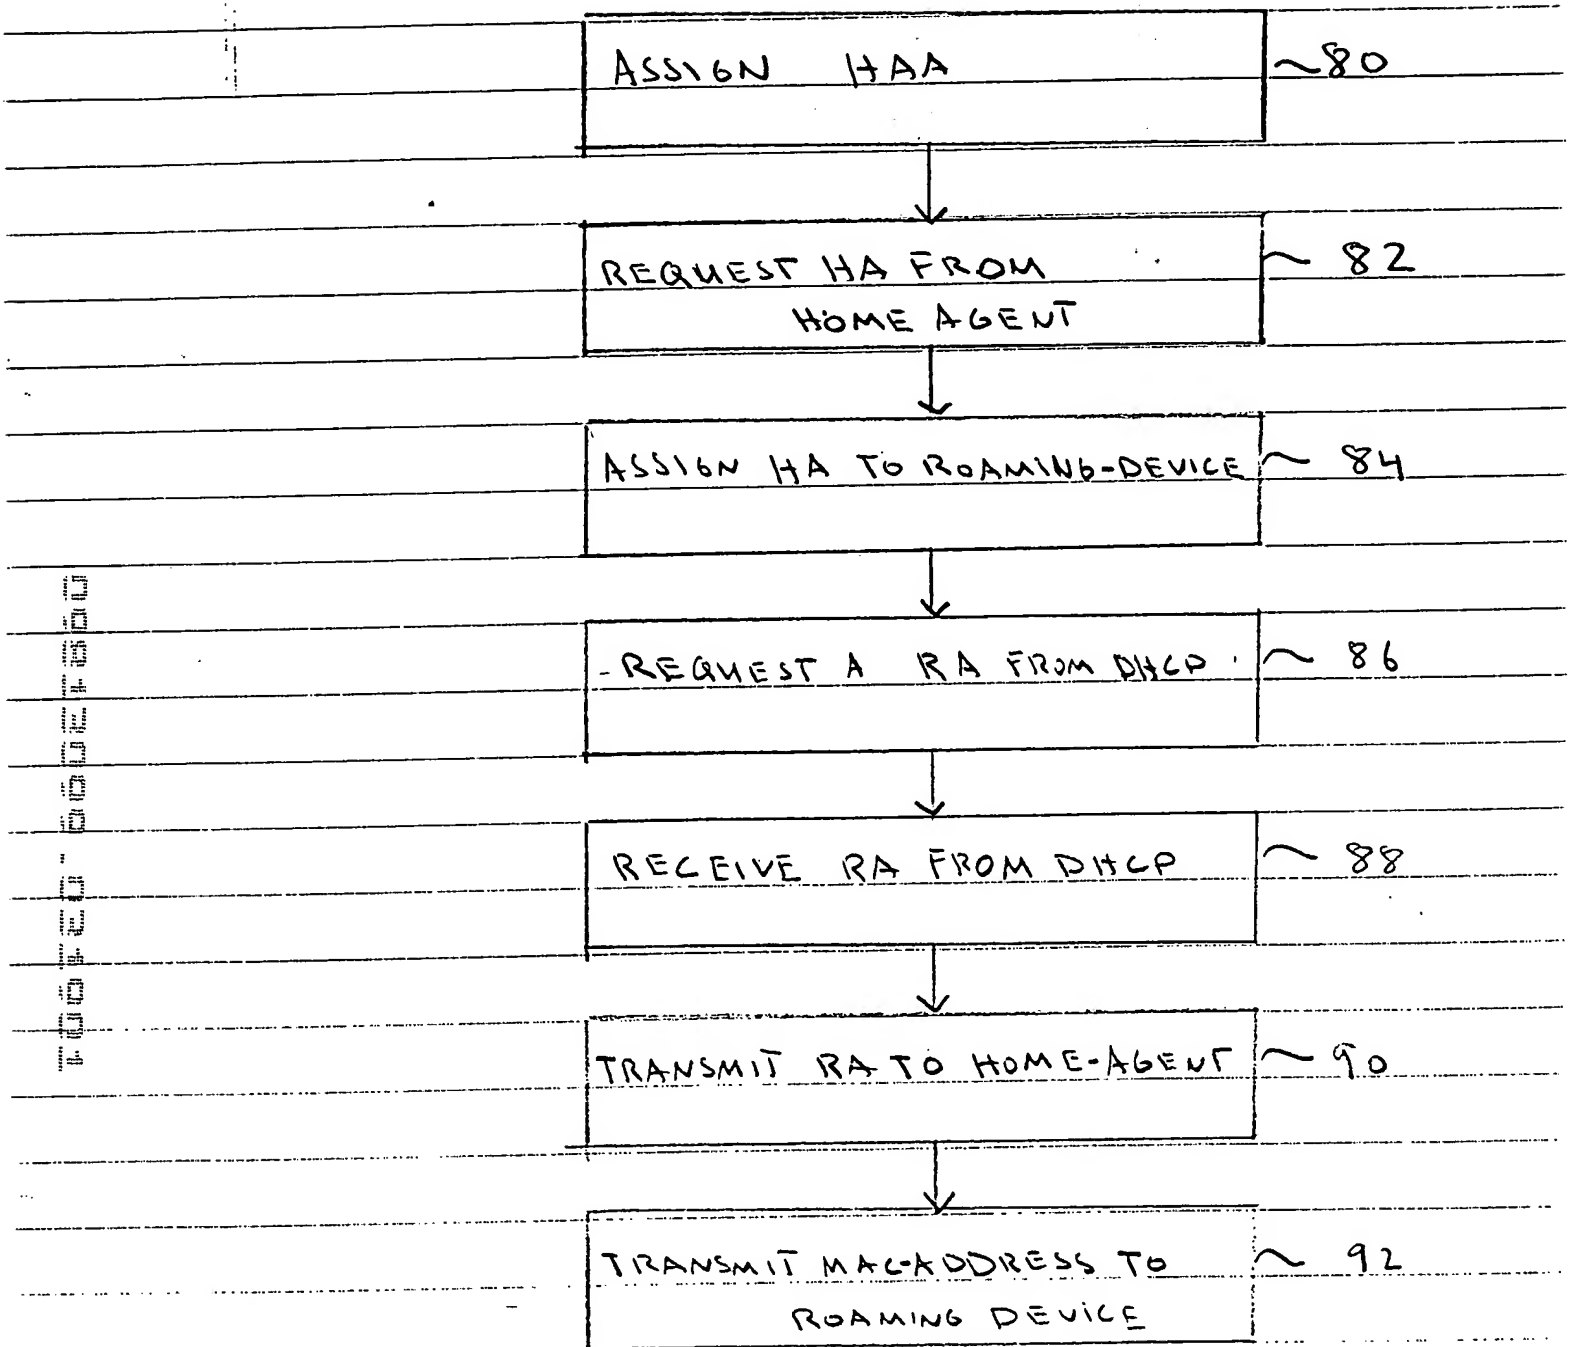 ASSIGN HAA ~80
REQUEST HA FROM ~ 82
HOME AGENT
ASSIGN HA TO ROAMING-DEVICE ~ 84
- REQUEST A RA FROM DHCP ~ 86
RECEIVE RA FROM DHCP ~ 88
TRANSMIT RA TO HOME-AGENT ~ 90
TRANSMIT MAC-ADDRESS TO ~ 92
ROAMING DEVICE